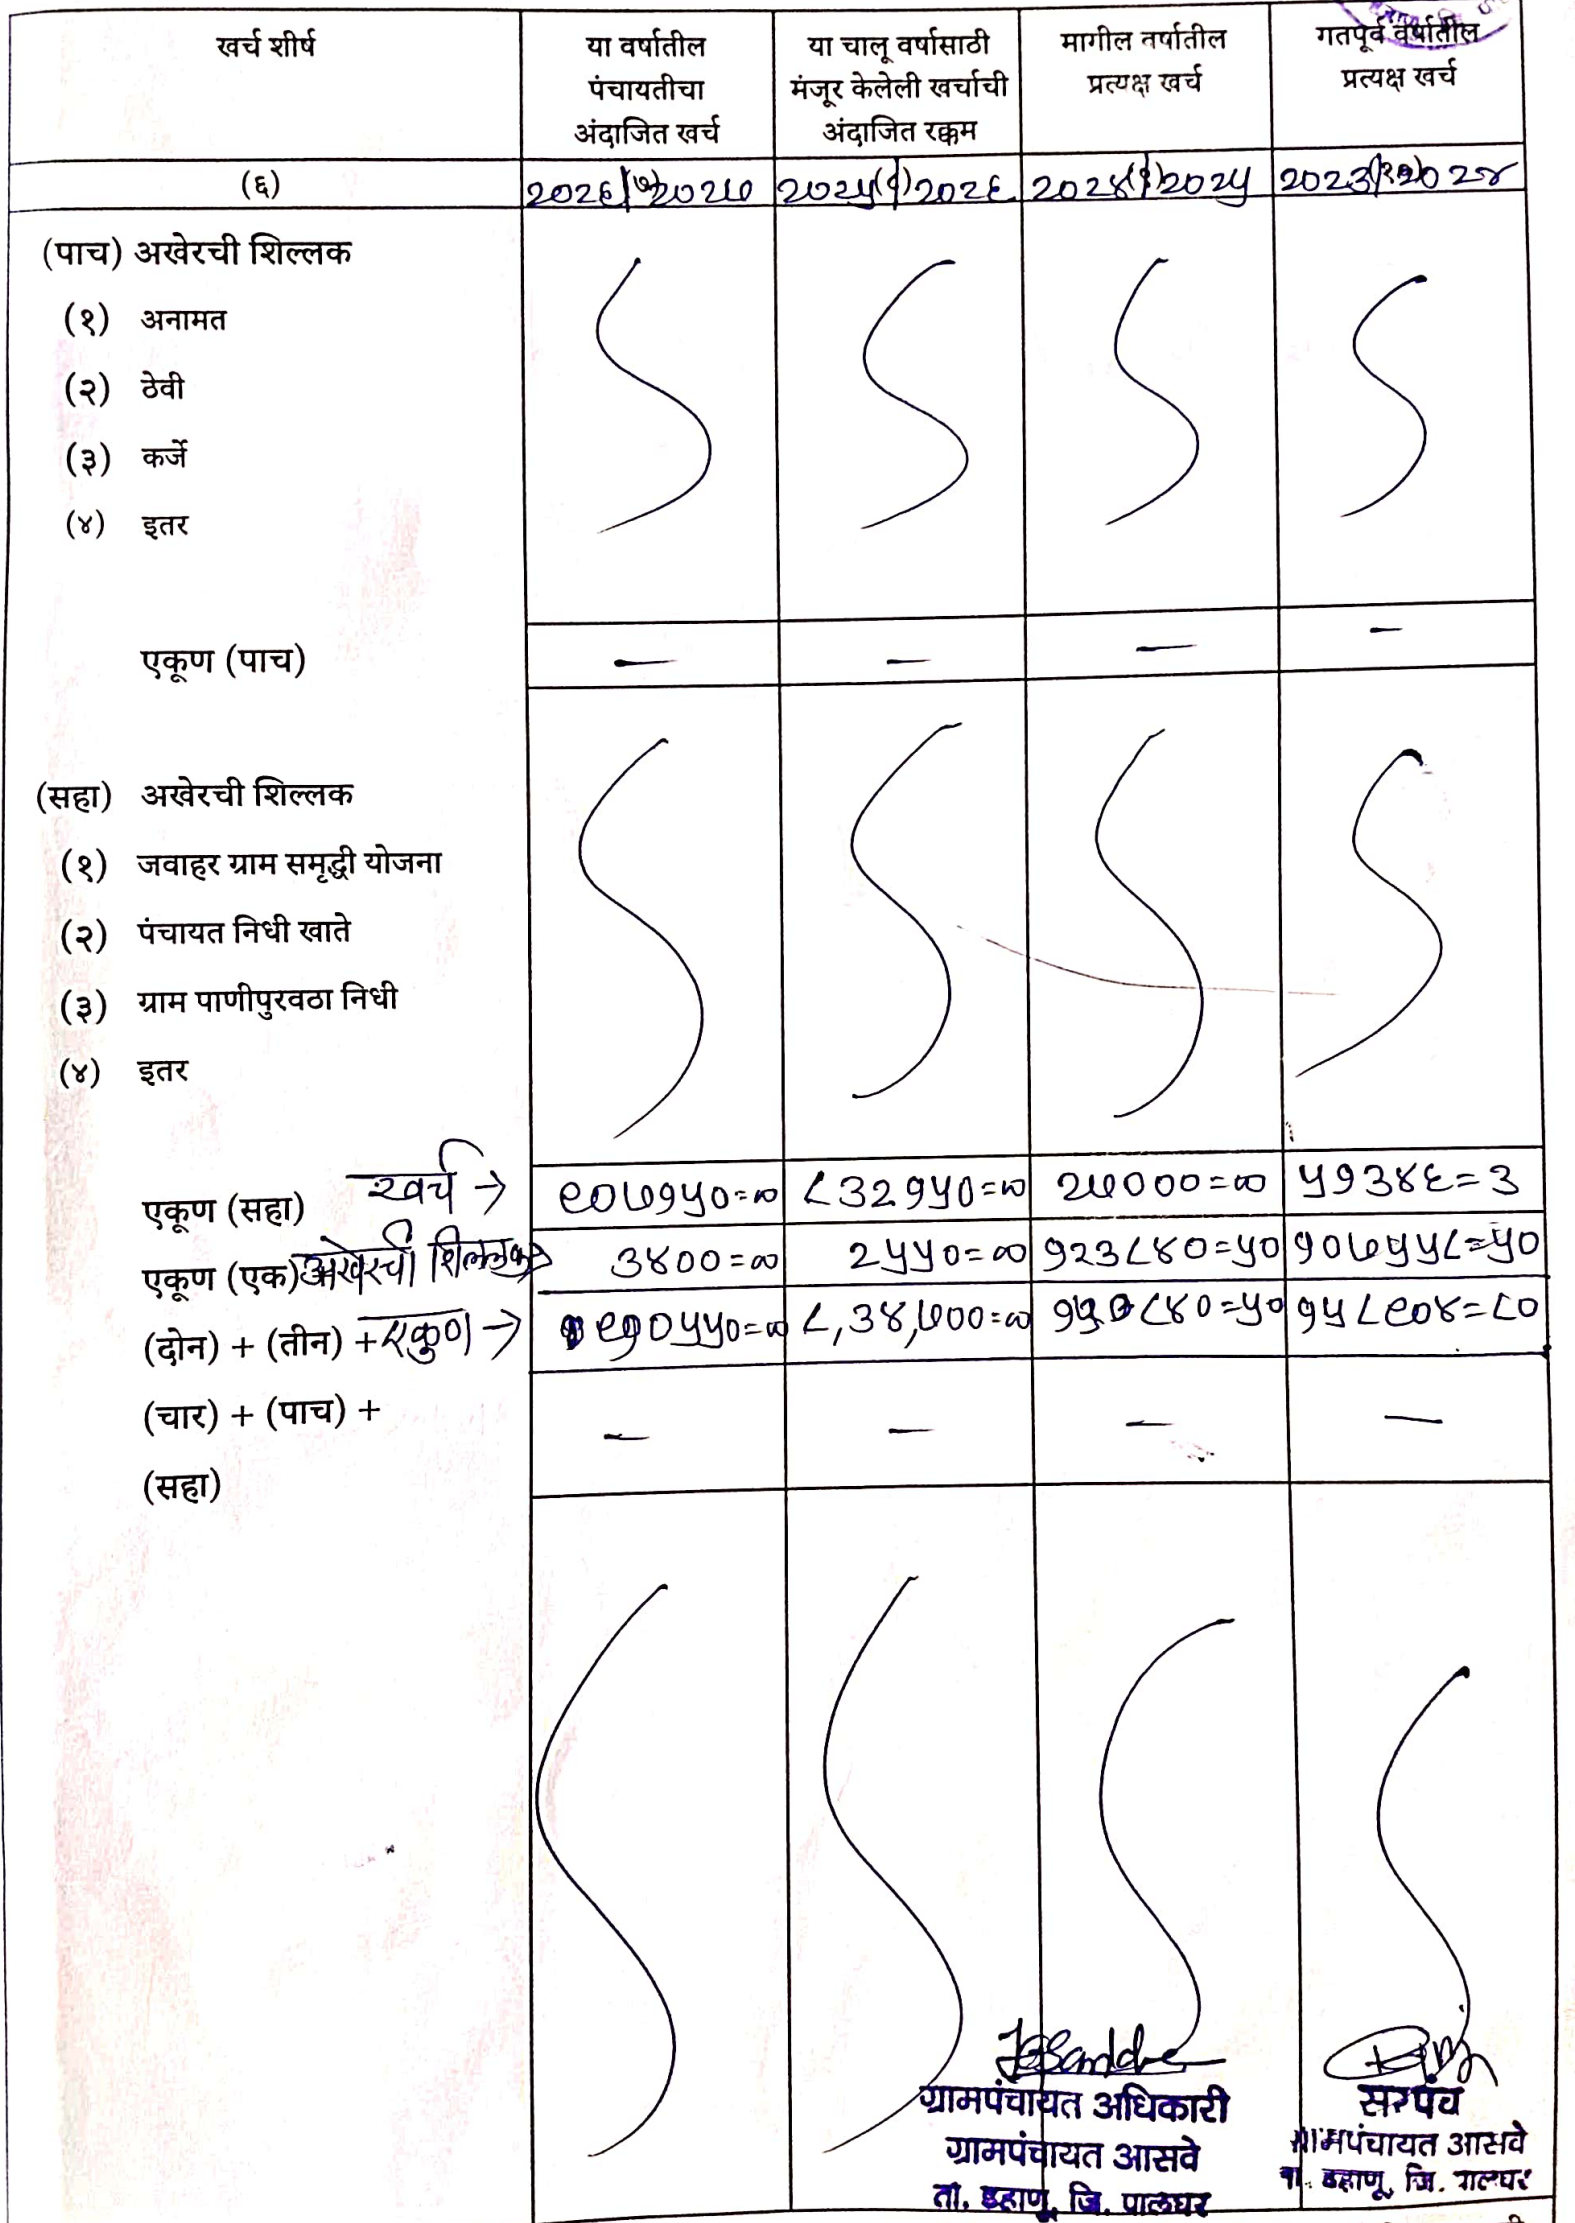 खर्च शीर्ष
या वर्षातील पंचायतीचा अंदाजित खर्च
या चालू वर्षासाठी मंजूर केलेली खर्चाची अंदाजित रक्कम
मागील वर्षातील प्रत्यक्ष खर्च
गतपूर्व वर्षातील प्रत्यक्ष खर्च
(६) २०२६(७)२०२७ २०२५(८)२०२६ २०२४(९)२०२५ २०२३(१०)२०२४
(पाच) अखेरची शिल्लक
(१) अनामत
(२) ठेवी
(३) कर्जे
(४) इतर
एकूण (पाच) — — — —
(सहा) अखेरची शिल्लक
(१) जवाहर ग्राम समृद्धी योजना
(२) पंचायत निधी खाते
(३) ग्राम पाणीपुरवठा निधी
(४) इतर
एकूण (सहा) खर्च → ९०७१५०=०० ८३२१५०=०० २७०००=०० ५१३४६=३
एकूण (एक) अखेरची शिल्लक→ ३४००=०० २५५०=०० १२३८४०=५० १०७५५८=५०
(दोन) + (तीन) + एकुण → ९१०५५०=०० ८,३४,७००=०० १५०८४०=५० १५८९०४=८०
(चार) + (पाच) + — — — —
(सहा)
ग्रामपंचायत अधिकारी
ग्रामपंचायत आसवे
ता. डहाणू, जि. पालघर
सरपंच
ग्रामपंचायत आसवे
ता. डहाणू, जि. पालघर